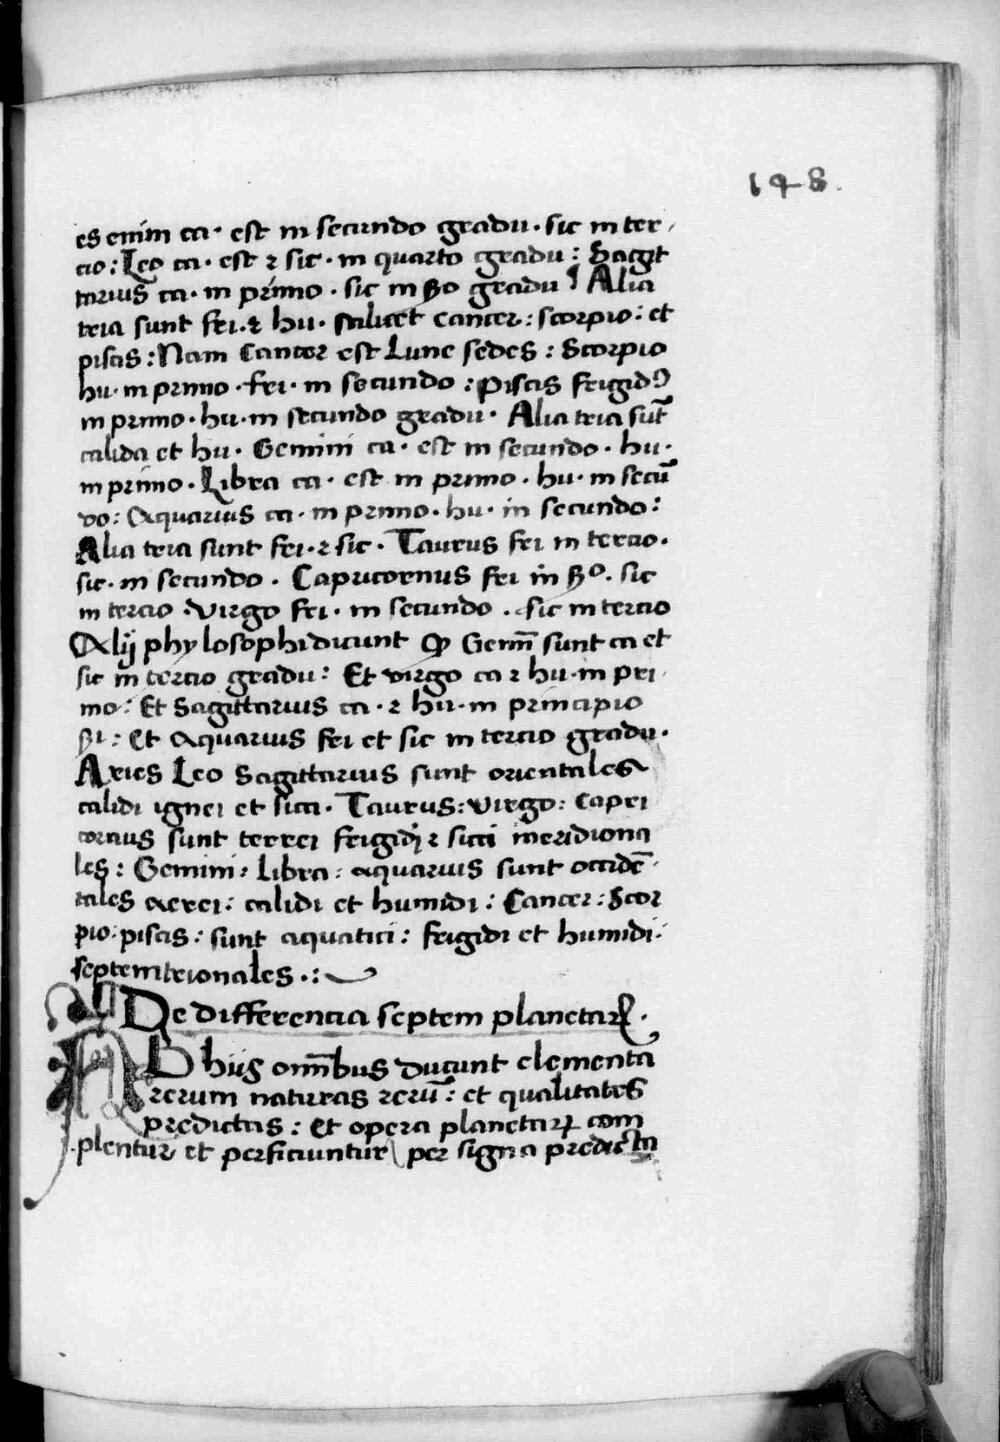 148.
es enim ca · est in secundo gradu · sic in ter-
cio : Leo ca · est ⁊ sic · in quarto gradu : Sagit
tarius ca · in primo · sic in ꝓo gradu Alia
tria sunt fri · ⁊ hu · scilicet cancer : scorpio : et
piscis : Nam Cancer est Lune sedes : Scorpio
hu · in primo · fri · in secundo : Piscis frigidꝰ
in primo · hu · in secundo gradu · Alia tria sūt
calida et hu · Gemini ca · est in secundo · hu ·
in primo · Libra ca · est in primo · hu · in secū
do : Aquarius ca · in primo · hu · in secundo :
Alia tria sunt fri · ⁊ sic · Taurus fri in tercio ·
sic · in secundo · Capricornus fri in · sic
in tercio · Virgo fri · in secundo · sic in tercio
Alij phylosophi dicunt ꝙ Gemī sunt ca et
sic in tercio gradu : Et virgo ca ⁊ hu · in pri
mo : Et Sagittarius ca · ⁊ hu · in principio
: Et Aquarius fri et sic in tercio gradu ·
Aries Leo Sagittarius sunt orientales
calidi ignei et sicci · Taurus : virgo : Capri
cornus sunt terrei frigidi ⁊ sicci meridiona
les : Gemini : libra : aquarius sunt occidē-
tales aerei : calidi et humidi : Cancer : Scor
pio : piscis : sunt aquatici : frigidi et humidi :
septemtrionales · :
De differencia septem planetaꝝ ·
AB hijs om̄ibus ducunt elementa
rerum naturas rerū : et qualitates
predictas : Et opera planetaꝝ com
plentur et perficiuntur per signa predicta